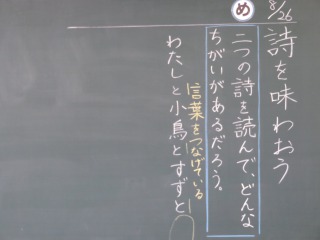 8/26
詩を味わおう
め
二つの詩を読んで、どんな
ちがいがあるだろう。
言葉をつなげている
わたしと小鳥とすずと